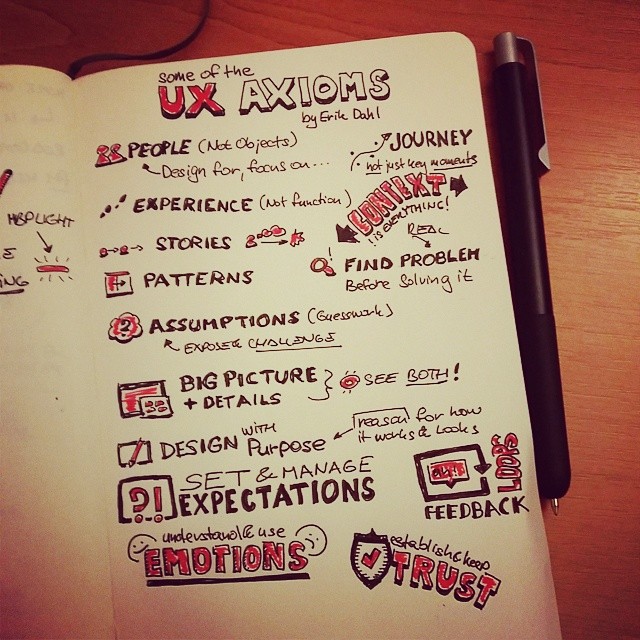 some of the
UX AXIOMS
by Erik Dahl
PEOPLE (Not Objects)
Design for, focus on...
JOURNEY
not just key moments
EXPERIENCE (Not function)
CONTEXT
IS EVERYTHING!
STORIES
REAL
FIND PROBLEM
Before Solving it
PATTERNS
ASSUMPTIONS (Guesswork)
EXPOSE & CHALLENGE
BIG PICTURE
+ DETAILS
SEE BOTH!
DESIGN WITH Purpose
reason for how
it works & looks
SET & MANAGE
EXPECTATIONS
?!
FEEDBACK
LOOPS
understand & use
EMOTIONS
establish & keep
TRUST